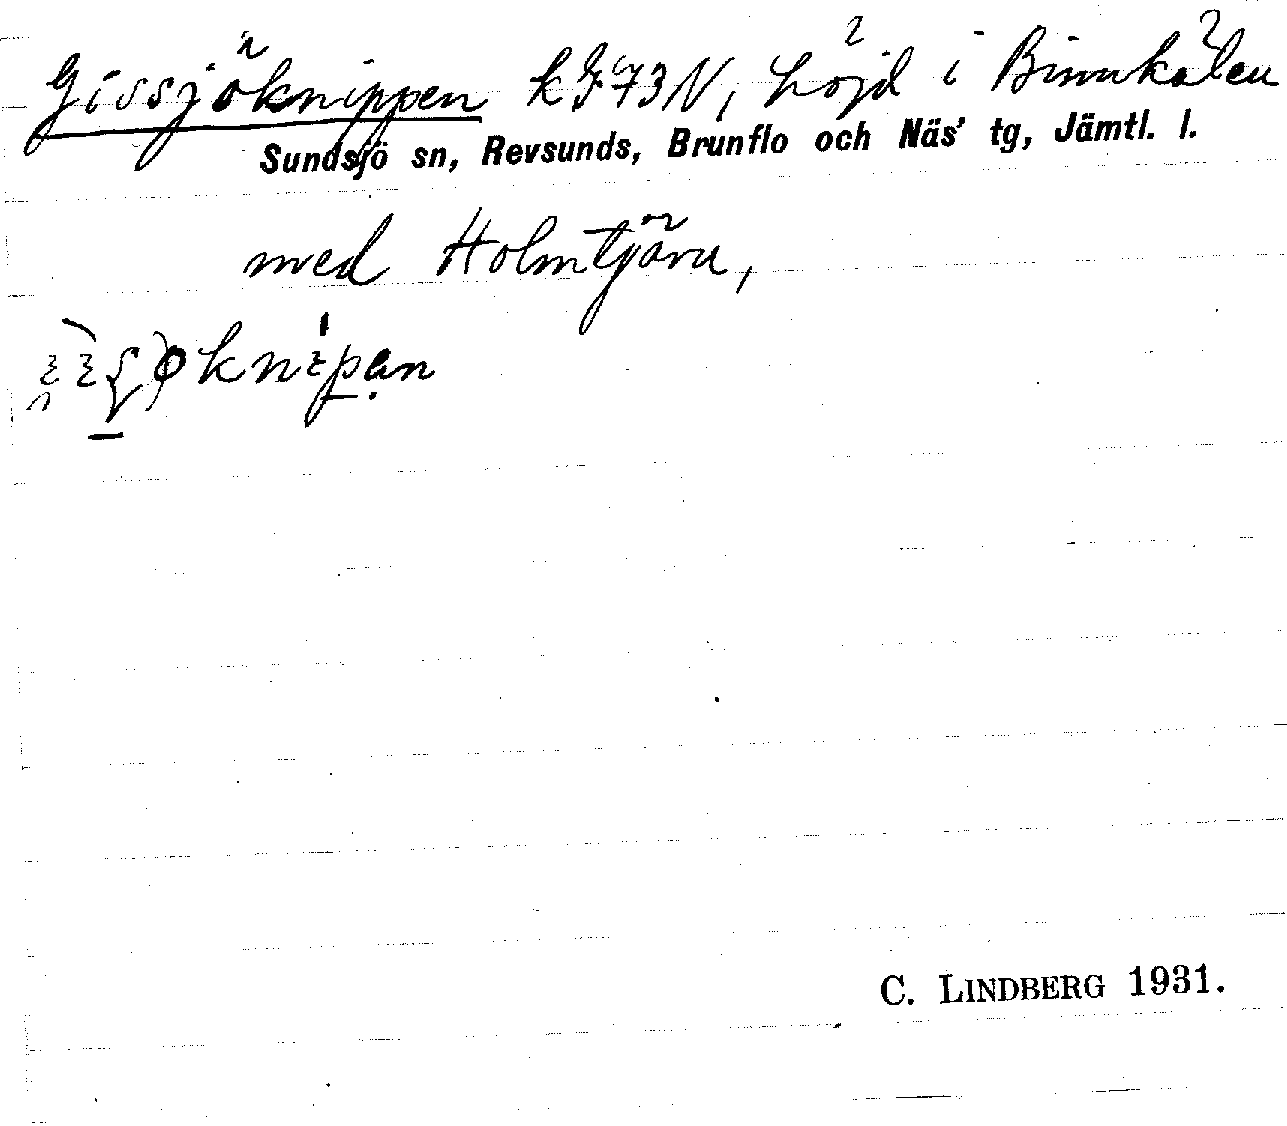 Gissjöknippen k573N, höjd i Binnkölen
Sundsjö sn, Revsunds, Brunflo och Näs' tg, Jämtl. l.
med Holmtjärn,
C. LINDBERG 1931.